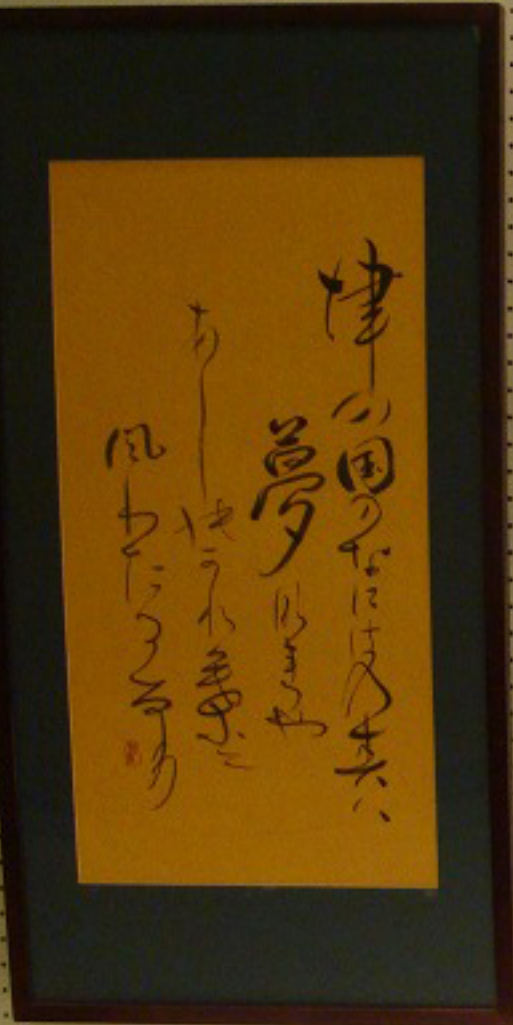 津の国のなにはの春ハ
夢なれや
あしのかれ葉に
風わたるなり